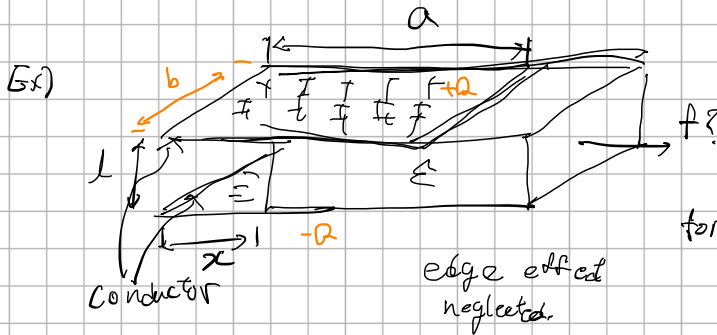 a
Ex)
b
+Q
l
ε
f?
for
x
-Q
conductor
edge effect
neglected.